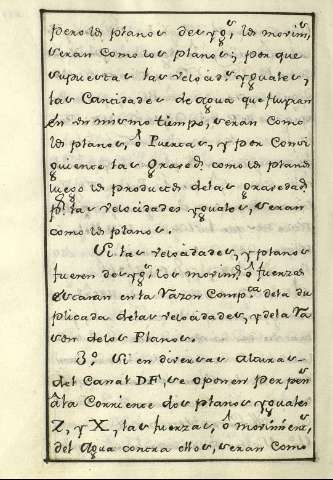 pero los planos desyg.s, los movim.s
seran como los planos; por que
supuestas las velocid.s yguales,
las Cantidades de agua que fluyran
en un mismo tiempo, seran como
los planos, ô Puertas, y por Consi
guiente las graved.s como los planos
luego los productos delas gravedad.s
p.r las velocidades yguales, seran
como los planos.
Si las velocidades, y planos
fueren desyg.s, los movim.s ô fuerzas
estaran en la Razon Comp.ta dela du
plicada delas velocidades, y dela Ra
zon delos Planos.
3.º Si en diversas alturas
del Canal DF, se oponen per pen
â la Corriente dos planos yguales
Z, y X, las fuerzas, ô movimien.s
del agua contra ellos, seran como